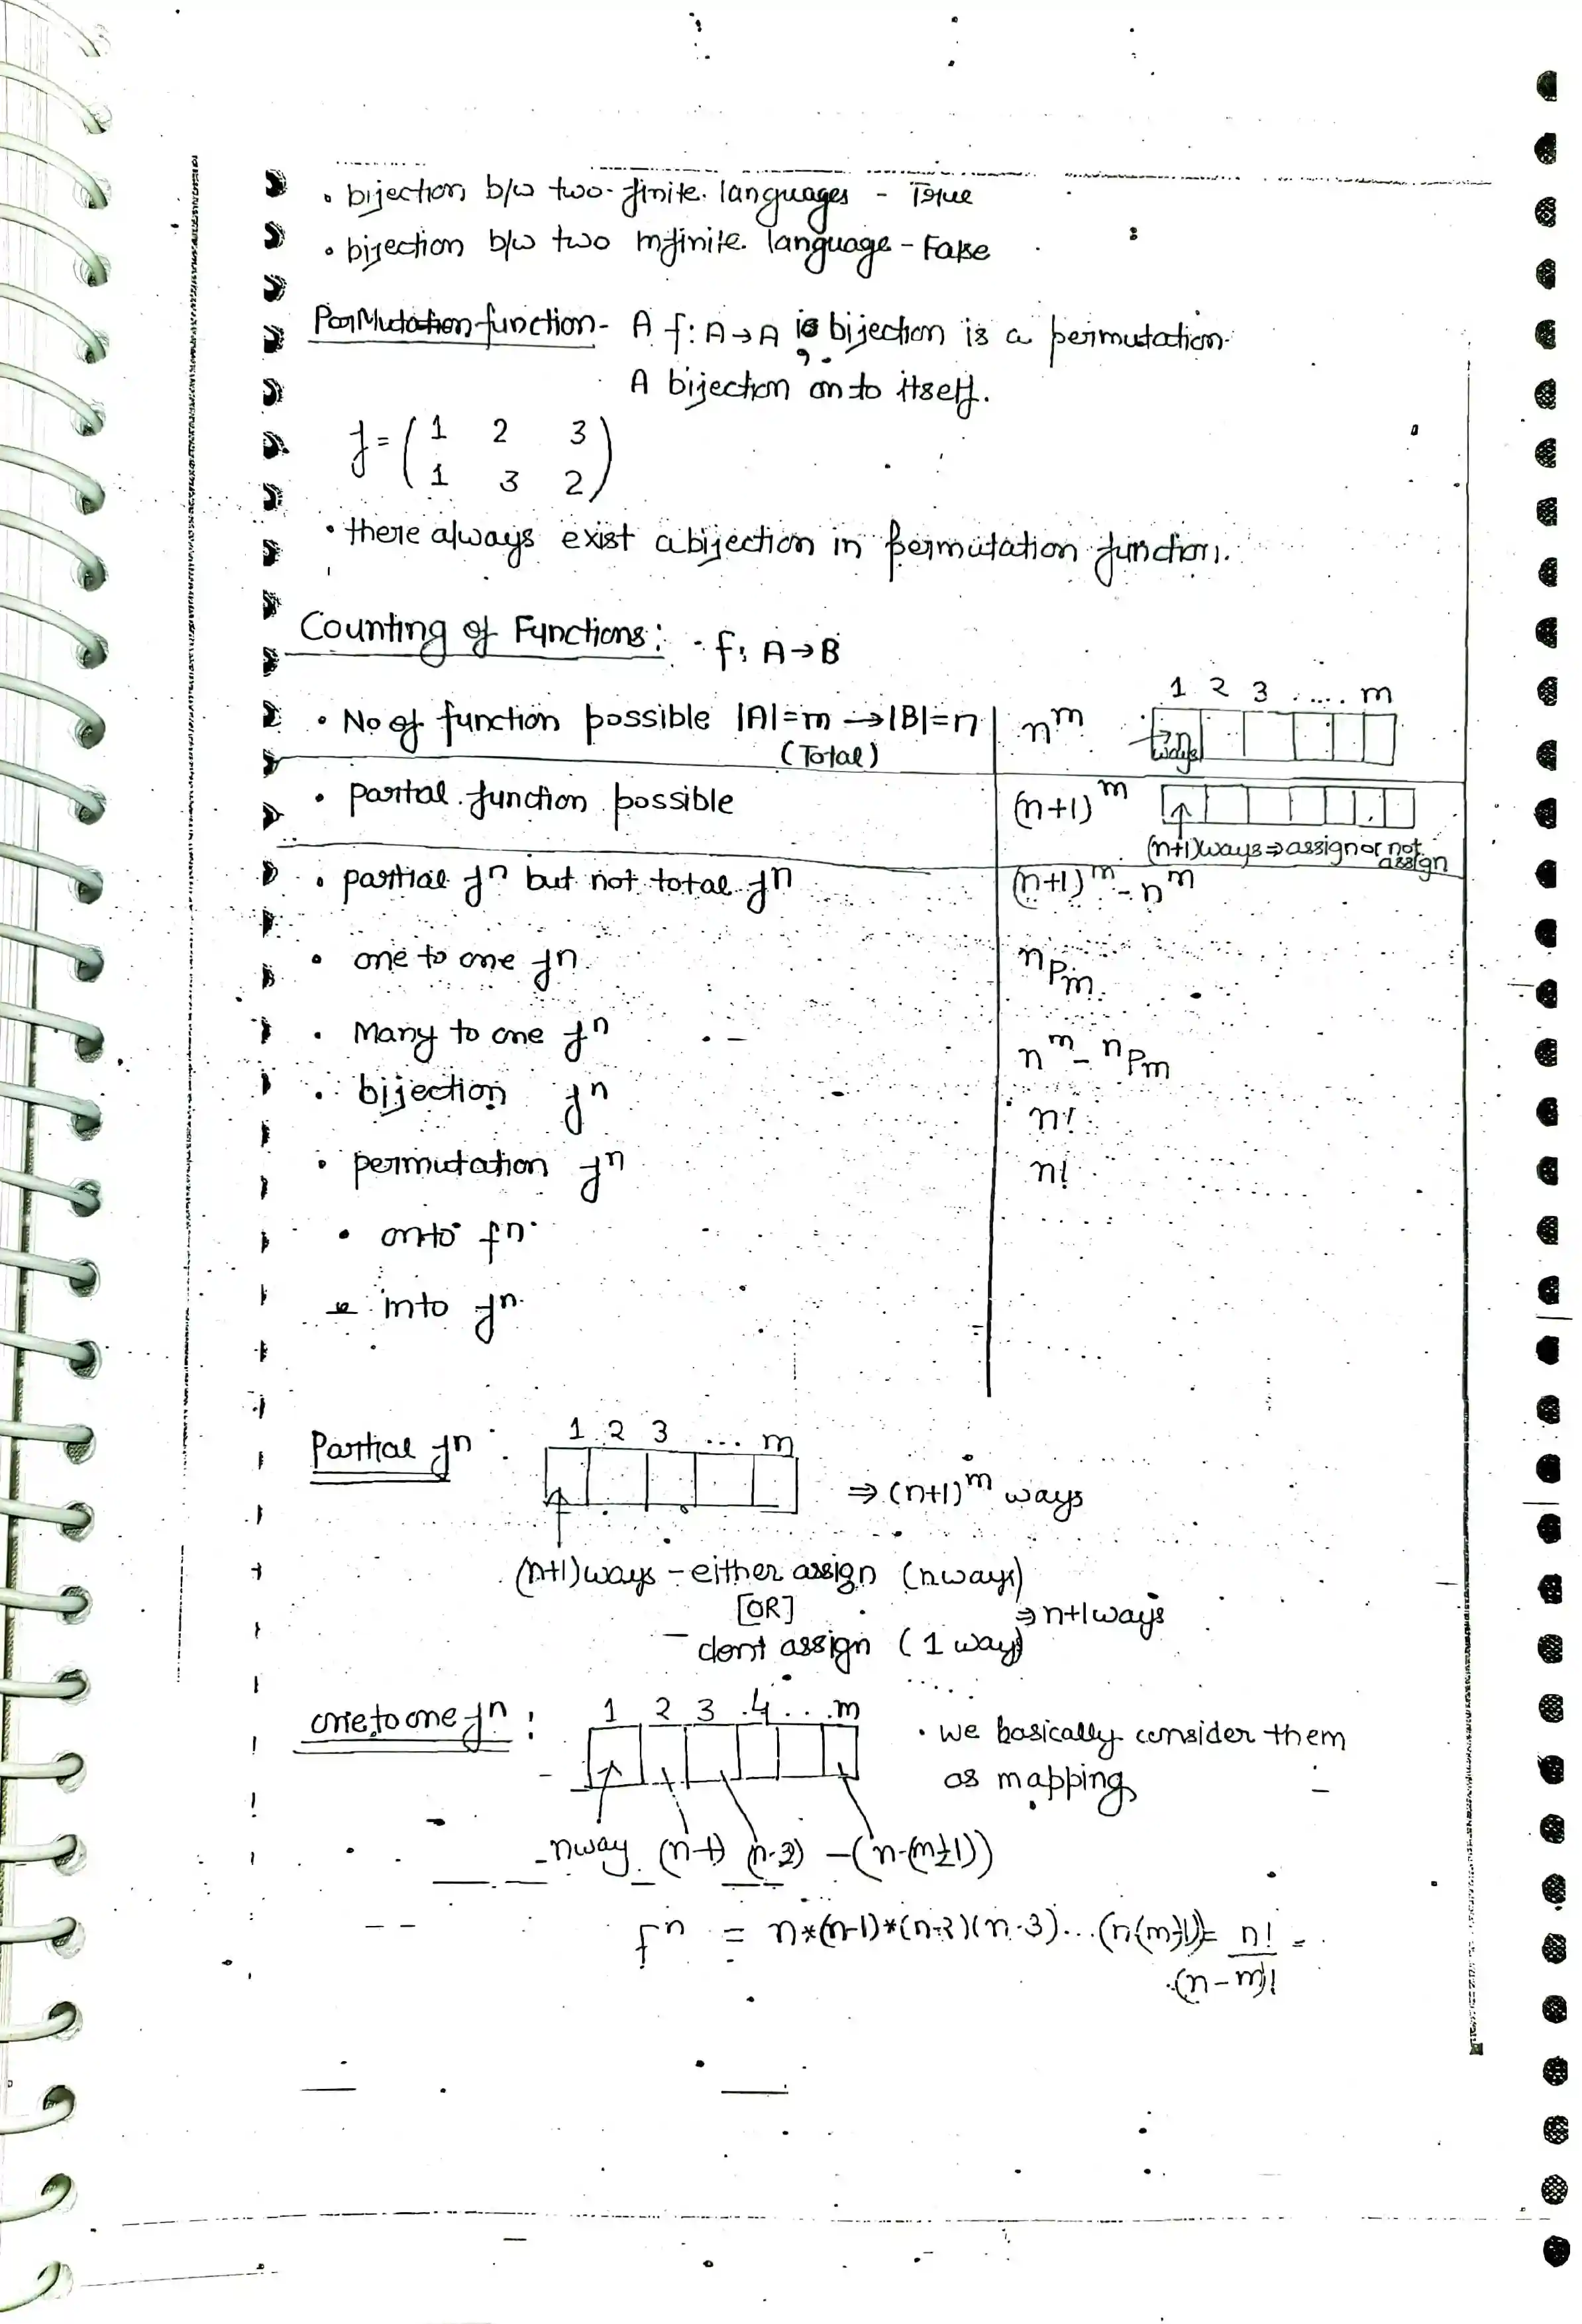 • bijection b/w two finite languages - True
• bijection b/w two infinite language - False
PerMutation function - A f: A→A is bijection is a permutation.
A bijection on to itself.
f = ( 1 2 3
1 3 2 )
• there always exist a bijection in permutation function.
Counting of Functions: - f: A→B
1 2 3 ..... m
• No of function possible |A|=m → |B|=n n^m n ways
(Total)
• partial function possible (n+1)^m
(n+1)ways ⇒ assign or not assign
• partial fn but not total fn (n+1)^m - n^m
• one to one fn. nPm
• Many to one fn n^m - nPm
• bijection fn n!
• permutation fn n!
• onto fn
• into fn.
Partial fn : 1 2 3 ... m
⇒ (n+1)^m ways
(n+1)ways - either assign (n ways)
[OR] ⇒ n+1 ways
- dont assign (1 way)
one to one fn : 1 2 3 4 ... m
• we basically consider them
as mapping
n way (n-1) (n-2) - (n-(m-1))
fn = n*(n-1)*(n-2)(n-3)...(n-(m-1)) = n! =
(n-m)!